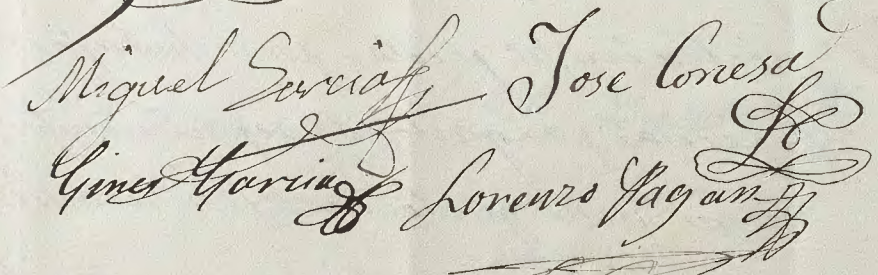 Miguel Garcia Jose Conesa
Gines Garcia Lorenzo Pagan